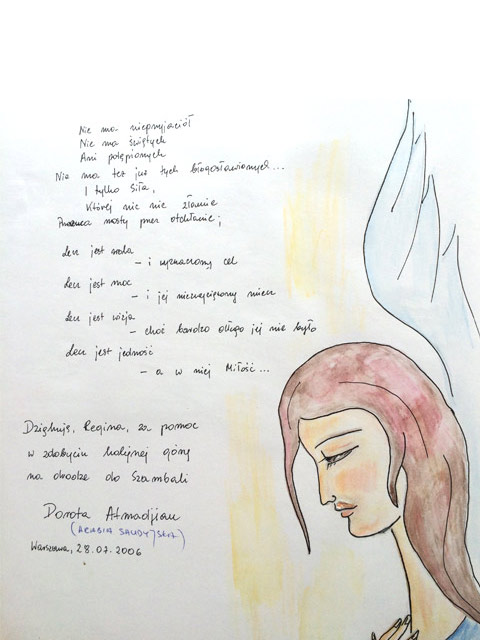 Nie ma nieprzyjaciół
Nie ma świętych
Ani potępionych
Nie ma też już tych błogosławionych...
I tylko Siła,
Której nic nie złamie
Przerzuca mosty przez otchłanie;
Lecz jest wola
- i wyznaczony cel
Lecz jest moc
- i jej niezwyciężony miecz
Lecz jest wizja
- choć bardzo długo jej nie było
Lecz jest jedność
- a w niej Miłość...
Dziękuję, Regina, za pomoc
w zdobyciu kolejnej góry
na drodze do Szambali
Dorota Atmadjian
(ARABIA SAUDYJSKA)
Warszawa, 28.07.2006